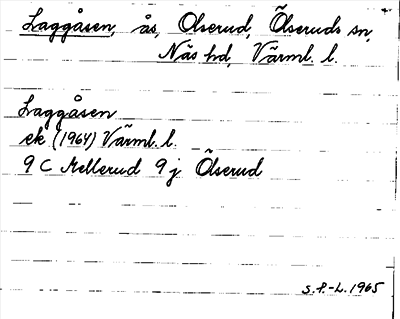 Laggåsen, ås, Olserud, Ölseruds sn,
Näs hd, Värml. l.
Laggåsen
ek (1964) Värml. l.
9 C Mellerud 9 j Ölserud
S.P.-L. 1965